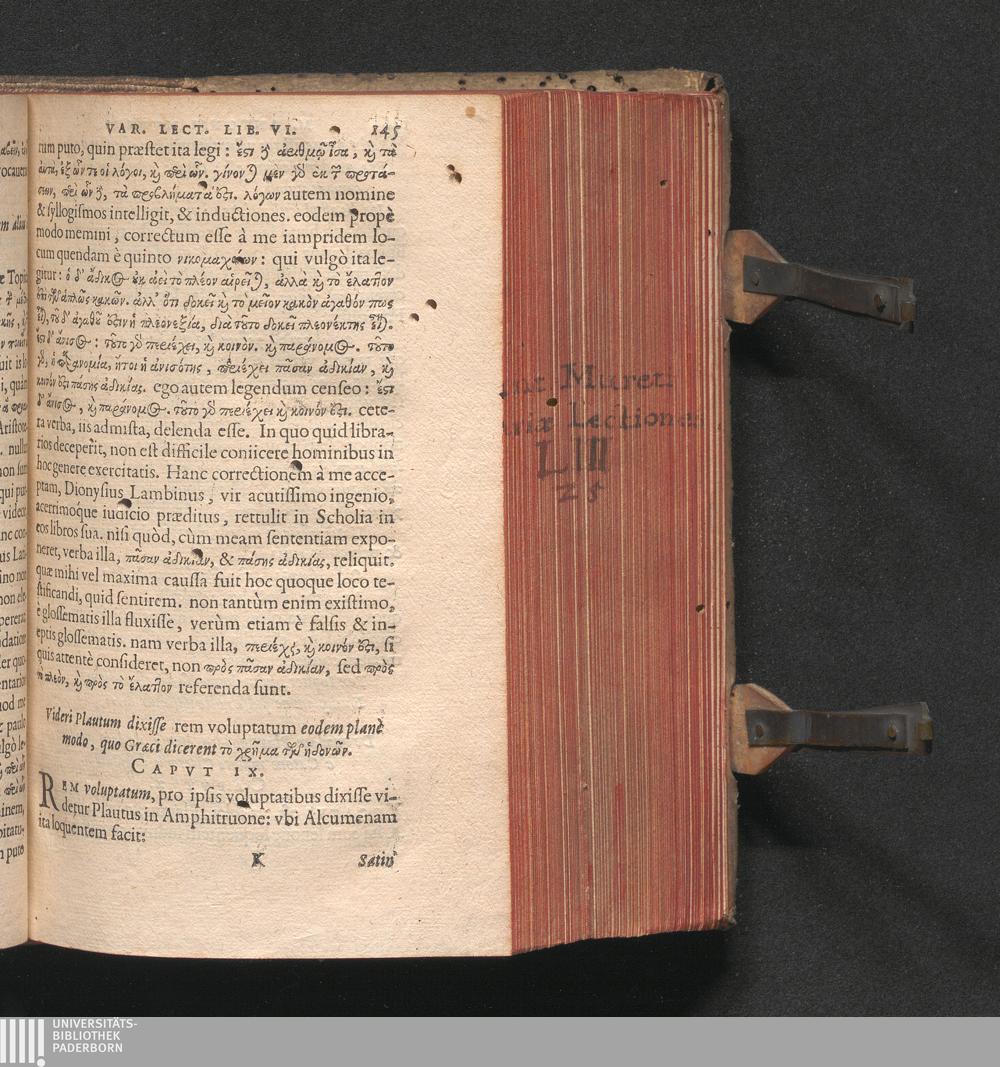 VAR. LECT. LIB. VI. 145
rum puto, quin præstet ita legi: ἔστι δ ἀριθμῷ ἴσα, κὶ τὰ
αὐτὰ, ἐξ ὧν τε οἱ λόγοι, κὶ περὶ ὧν. γίνον) μεν γὸ ἐκ τ προτά-
σεων, περὶ ὧν δ, τὰ προβλήματά ὅτι. λόγων autem nomine
& syllogismos intelligit, & inductiones. eodem propè
modo memini, correctum esse à me iampridem lo-
cum quendam è quinto νικομαχείων: qui vulgò ita le-
gitur: ὁ δ' ἄδικος οὐκ ἀεὶ τὸ πλέον αἱρεῖ), ἀλλὰ κὶ τὸ ἔλαττον
ἁπλῶς κακῶν. ἀλλ' ὅτι δοκεῖ κὶ τὸ μεῖον κακὸν ἀγαθόν πως
τοῦ δ' ἀγαθοῦ ὅτιν ἡ πλεονεξία, διὰ τοῦτο δοκεῖ πλεονέκτης εἶ).
ἔστι δ' ἄνισος: τοῦτο γὸ περιέχει, κὶ κοινὸν. κὶ παράνομος. τοῦτο
γὸ, ἡ παρανομία, ἤτοι ἡ ἀνισότης, περιέχει πᾶσαν ἀδικίαν, κὶ
κοινόν ὅτι πάσης ἀδικίας. ego autem legendum censeo: ἔστι
δ' ἄνισος, κὶ παράνομος. τοῦτο γὸ περιέχει κὶ κοινόν ὅτι. cete-
ra verba, iis admista, delenda esse. In quo quid libra-
rios deceperit, non est difficile coniicere hominibus in
hoc genere exercitatis. Hanc correctionem à me acce-
ptam, Dionysius Lambinus, vir acutissimo ingenio,
acerrimoque iudicio præditus, rettulit in Scholia in
eos libros sua. nisi quòd, cùm meam sententiam expo-
neret, verba illa, πᾶσαν ἀδικίαν, & πάσης ἀδικίας, reliquit.
quæ mihi vel maxima caussa fuit hoc quoque loco te-
stificandi, quid sentirem. non tantùm enim existimo,
è glossematis illa fluxisse, verùm etiam è falsis & in-
eptis glossematis. nam verba illa, περιέχει, κὶ κοινόν ὅτι, si
quis attentè consideret, non πρὸς πᾶσαν ἀδικίαν, sed πρὸς
τὸ πλέον, κὶ πρὸς τὸ ἔλαττον referenda sunt.
Videri Plautum dixisse rem voluptatum eodem planè
modo, quo Græci dicerent τὸ χρῆμα τῶν ἡδονῶν.
CAPVT IX.
REM voluptatum, pro ipsis voluptatibus dixisse vi-
detur Plautus in Amphitruone: vbi Alcumenam
ita loquentem facit:
K Satin'
Mureti
Lectiones
LIII
25
UNIVERSITÄTS-
BIBLIOTHEK
PADERBORN